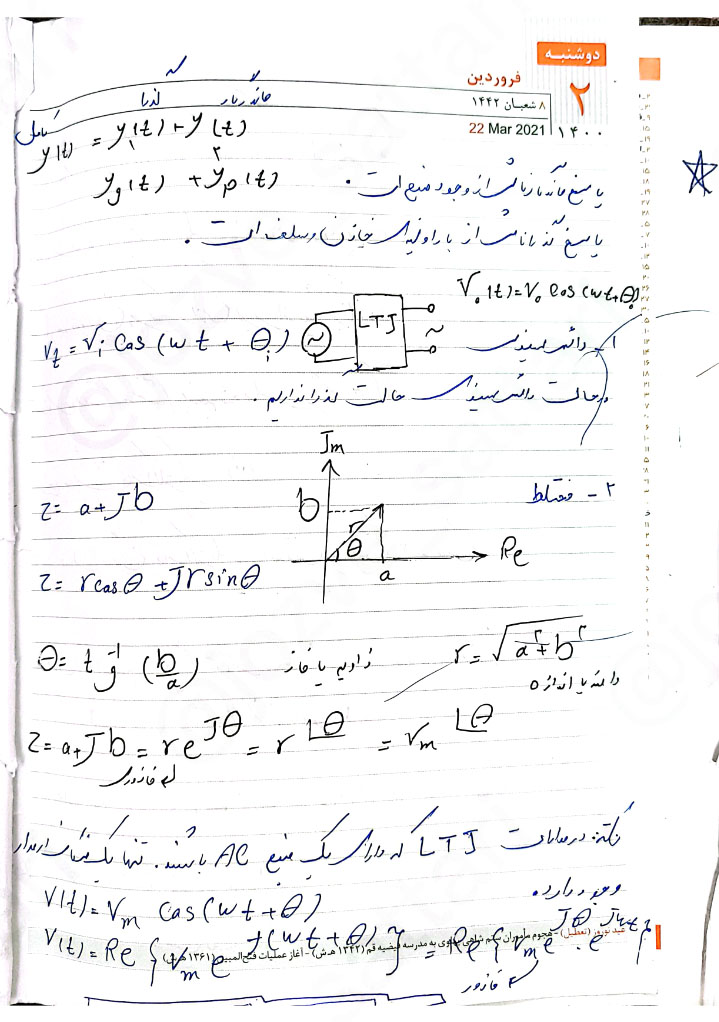 دوشنبه
فروردین
۲
۸ شعبان ۱۴۴۲
22 Mar 2021
۱۴۰۰
ماندگار گذرا
کامل y(t) = y₁(t) + y₂(t)
y(t) + yₚ(t)
پاسخ ماندگار ناشی از وجود منبع است.
پاسخ گذرا ناشی از بار اولیه‌ی خازن و سلف است.
V₀(t) = V₀ Cos(wt+θ₀)
۱ـ دائمی سینوسی
LTI
~
~
Vᵢ = Vᵢ Cos(wt + θᵢ)
در حالت دائمی سینوسی حالت گذرا نداریم.
۲ - مختلط
Im
b
r
θ
a
Re
z = a + Jb
z = r cosθ + Jr sinθ
θ = tg⁻¹(b/a)
زاویه یا فاز
r = √(a² + b²)
دامنه یا اندازه
z = a + Jb = r e^{Jθ} = r∠θ = Vₘ∠θ
فازوری
نکته: در مدارات LTI که دارای یک منبع AC باشند. تنها یک فرکانس در مدار
وجود دارد.
V(t) = Vₘ Cos(wt + θ)
V(t) = Re{Vₘ e^{J(wt+θ)}} = Re{Vₘ e^{Jθ} . e^{Jwt}}
فازور
عید نوروز (تعطیل) - هجوم مأموران ستم شاهی پهلوی به مدرسه فیضیه قم (۱۳۴۲ ه.ش) - آغاز عملیات فتح المبین (۱۳۶۱ ه.ش)